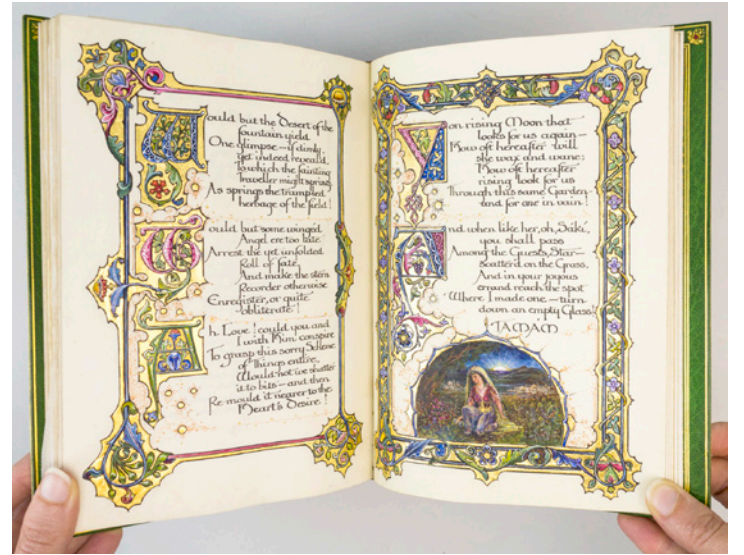 Would but the Desert of the
fountain yield
One glimpse—if dimly,
yet indeed reveal'd,
To which the fainting
Traveller might spring,
As springs the trampled
herbage of the field!
Would but some winged
Angel ere too late
Arrest the yet unfolded
Roll of fate,
And make the stern
Recorder otherwise
Enregister, or quite
obliterate!
Ah Love! could you and
I with Him conspire
To grasp this sorry Scheme
of Things entire,
Would not we shatter
it to bits—and then
Re-mould it nearer to the
Heart's Desire!
Yon rising Moon that
looks for us again—
How oft hereafter will
she wax and wane;
How oft hereafter
rising look for us
Through this same Garden—
and for one in vain!
And when like her, oh, Sáki,
you shall pass
Among the Guests Star-
scatter'd on the Grass,
And in your joyous
errand reach the spot
Where I made one—turn
down an empty Glass!
TAMAM